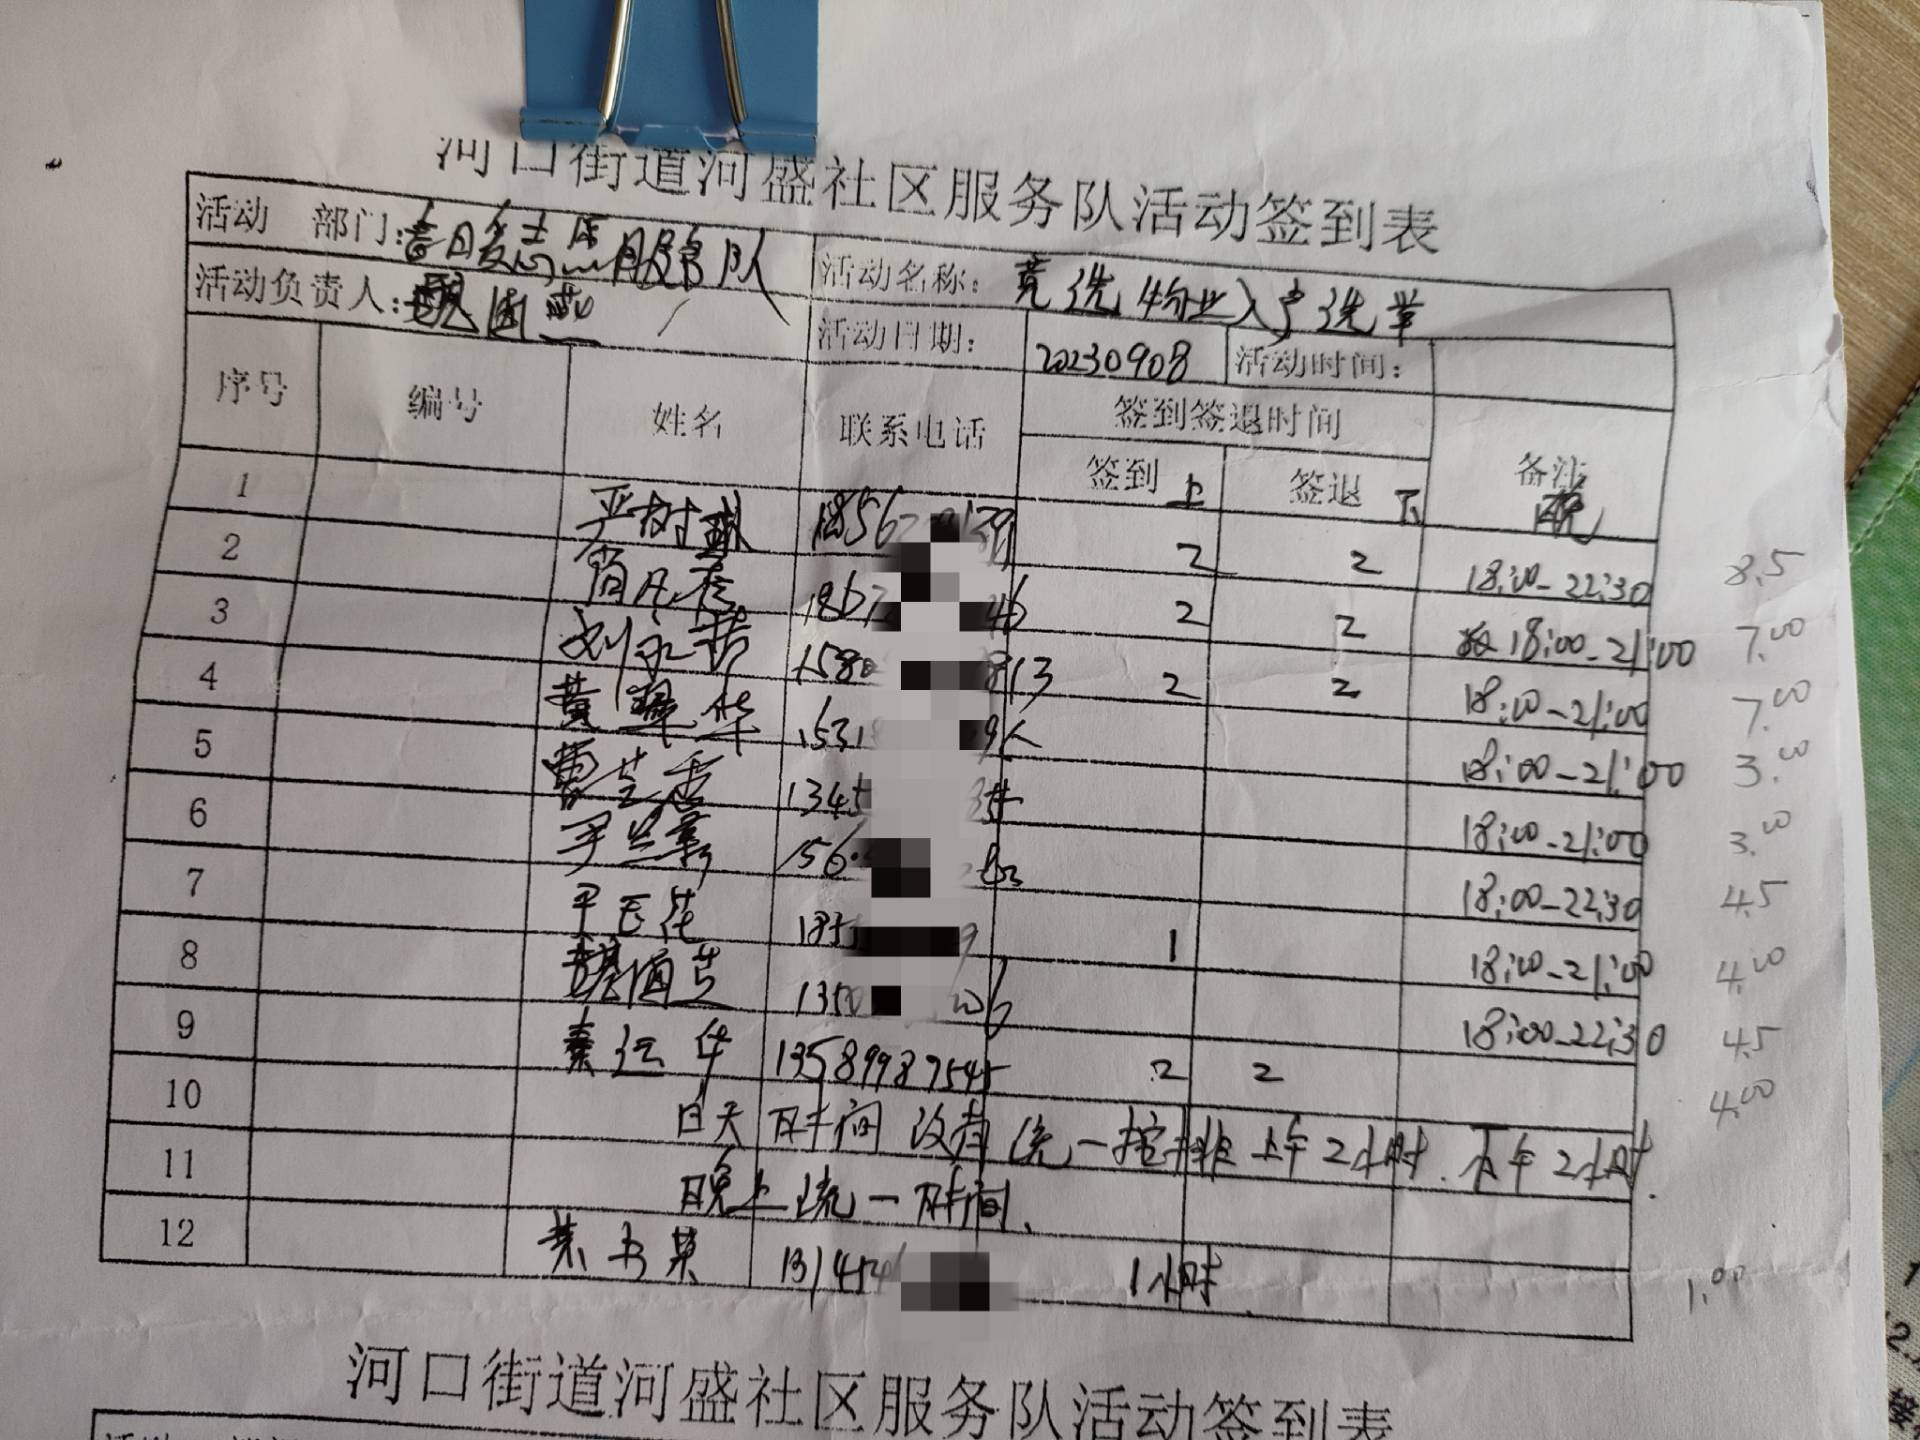 河口街道河盛社区服务队活动签到表
活动 部门: 服务队 活动名称: 竞选物业入户选举
活动负责人: 活动日期: 20230908 活动时间:
序号 编号 姓名 联系电话 签到签退时间 备注
签到 上 签退 下 晚
1 严树琳 1856 139 2 2 18:00-22:30 8.5
2 1867 46 2 2 18:00-21:00 7.00
3 刘永 1580 813 2 2 18:00-21:00 7.00
4 黄翠华 1531 18:00-21:00 3.00
5 曹芝香 1345 18:00-21:00 3.00
6 156 18:00-22:30 4.5
7 185 9 1 18:00-21:00 4.00
8 1350 06 18:00-22:30 4.5
9 秦运华 13589987545 2 2 4.00
10 白天时间没有统一按排上午2小时.下午2小时.
11 晚上统一时间.
12 13145 1小时. 1.00
河口街道河盛社区服务队活动签到表